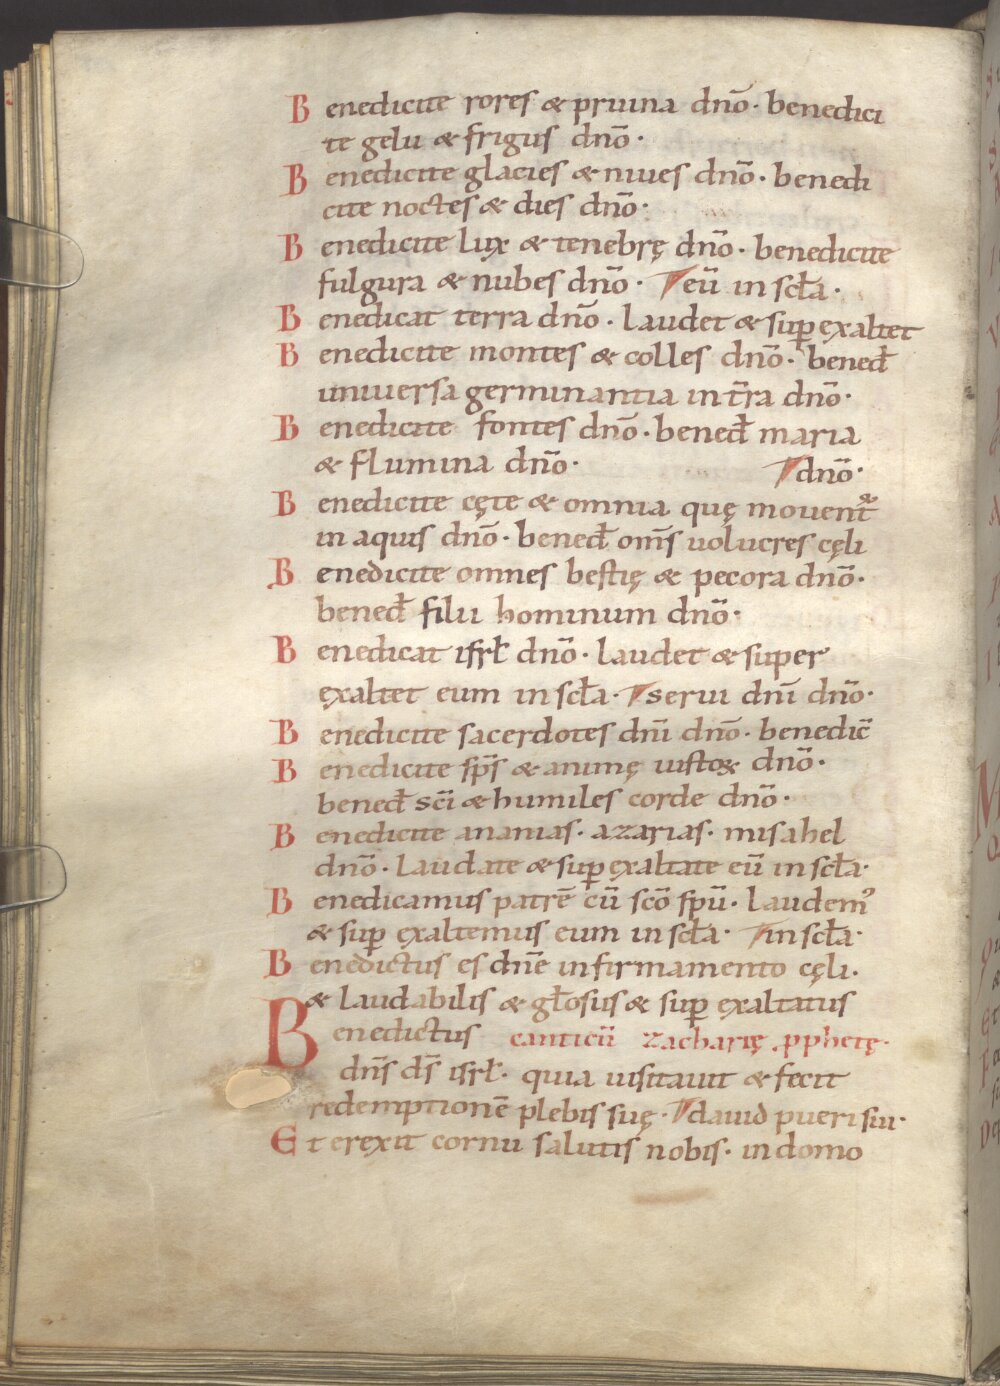 Benedicite rores & pruina dnō· benedici
te gelu & frigus dnō·
Benedicite glacies & niues dnō· benedi
cite noctes & dies dnō·
Benedicite lux & tenebrę dnō· benedicite
fulgura & nubes dnō· eū in scła·
Benedicat terra dnō· laudet & suꝑ exaltet
Benedicite montes & colles dnō· bened̄
uniuersa germinantia in t̄ra dnō·
Benedicite fontes dnō· bened̄ maria
& flumina dnō· dnō·
Benedicite cęte & omnia quę mouent᷑
in aquis dnō· bened̄ om̄s uolucres cęli
Benedicite omnes bestię & pecora dnō·
bened̄ filii hominum dnō·
Benedicat isrł dnō· laudet & super
ęxaltet eum in scła· serui dnī dnō·
Benedicite sacerdotes dnī dnō· benedic̄
Benedicite sp̄s & animę iustoꝝ dnō·
bened̄ sc̄i & humiles corde dnō·
Benedicite ananias· azarias· misahel
dnō· Laudate & suꝑ ęxaltate eū in scła·
Benedicamus patrē cū scō sp̄u· laudem᾿
& suꝑ ęxaltemus eum in scła· in scła·
Benedictus es dnē in firmamento cęli·
& laudabilis & głosus & suꝑ ęxaltatus
Benedictus canticū zacharię ꝓphetę·
dn̄s d̄s isrł· quia uisitauit & fecit
redemptionē plebis suę· dauid pueri sui·
Et eręxit cornu salutis nobis· in domo